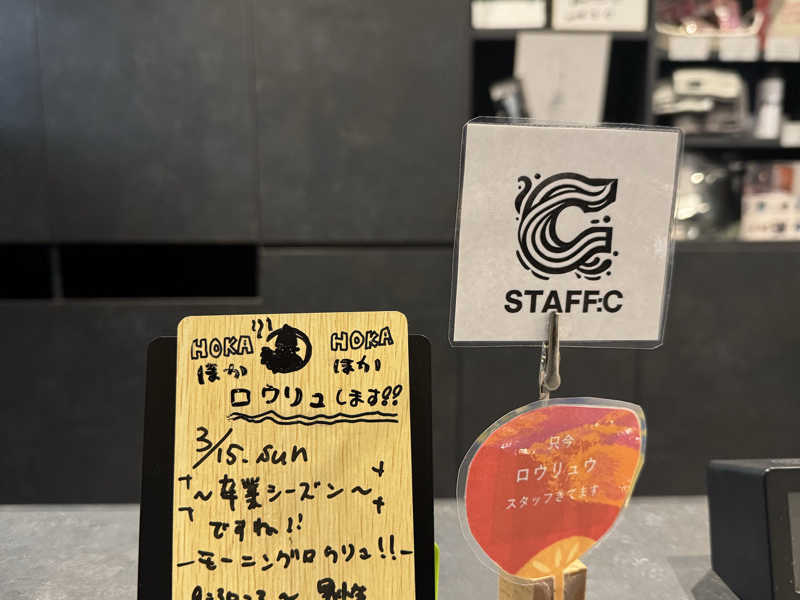 HOKA HOKA
ほか ほか
ロウリュします!!
3/15.sun
~卒業シーズン~
ですね!!
ーモーニングロウリュ!!ー
STAFF:C
只今
ロウリュウ
スタッフきてます